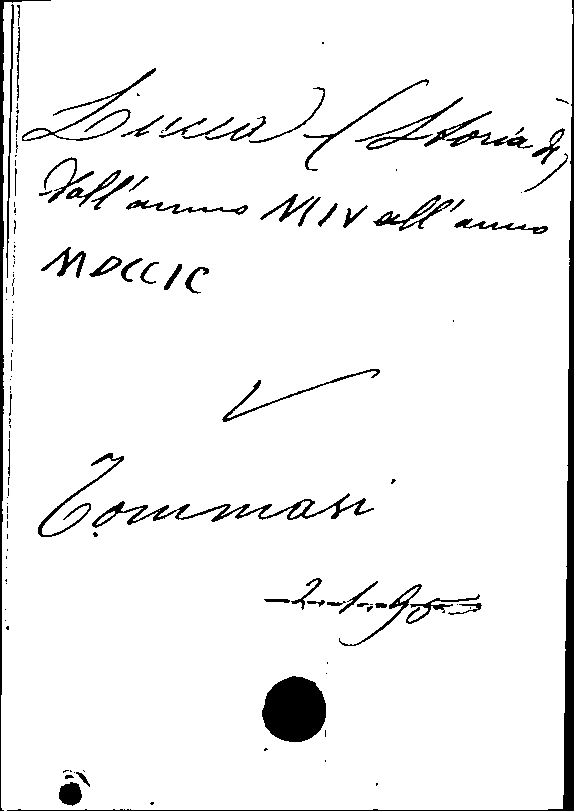 Lucca (Storia di)
dall'anno MIV all'anno
MDCCIC
Tommasi